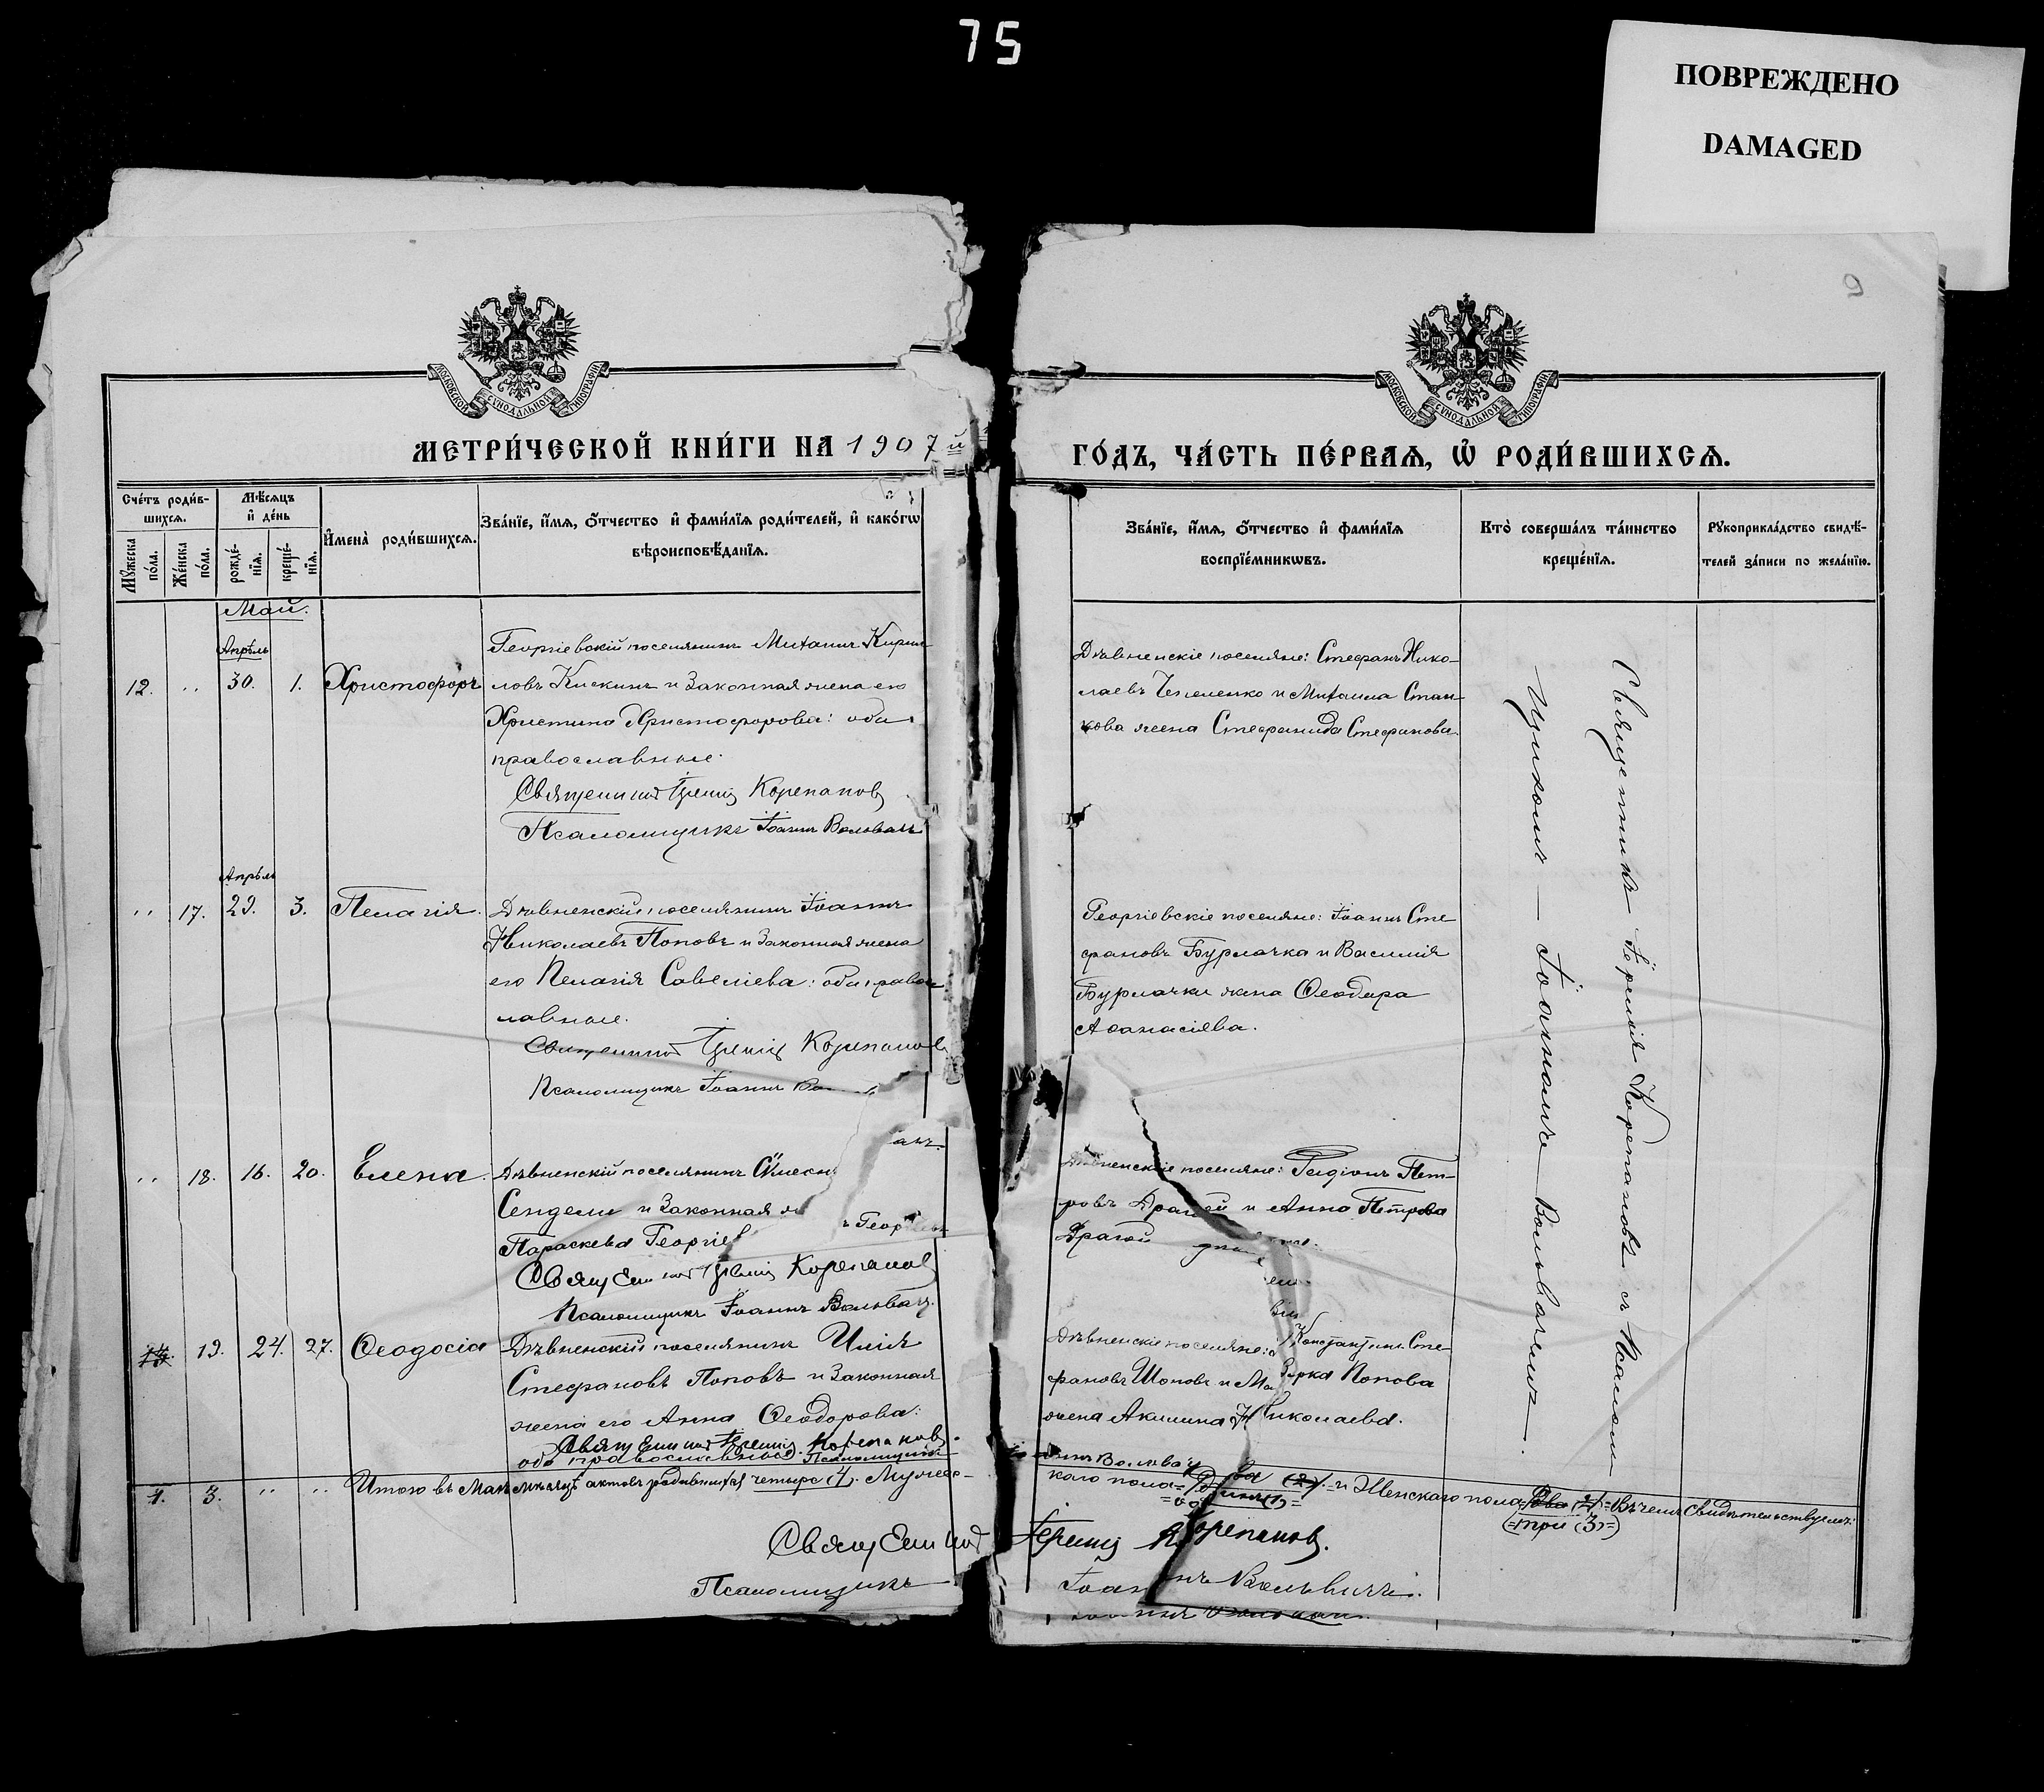 75
ПОВРЕЖДЕНО
DAMAGED
9
МОСКОВСКОЙ СѴНОДАЛЬНОЙ ТИПОГРАФІИ
МОСКОВСКОЙ СѴНОДАЛЬНОЙ ТИПОГРАФІИ
МЕТРИ́ЧЕСКОЙ КНИ́ГИ НА 1907 й
ГО́ДЪ, ЧА́СТЬ ПЕ́РВАѦ, Ѽ РОДИ́ВШИХСѦ.
Сче́тъ роди́в-
шихсѧ.
Мꙋ́жеска по́ла.
Же́нска по́ла.
Мѣ́сѧцъ
и҆ де́нь
рожде́-
нїѧ.
креще́-
нїѧ.
И҆мена̀ роди́вшихсѧ.
Зва́нїе, и҆́мѧ, ѻ҆́тчество и҆ фами́лїѧ роди́телей, и҆ како́гѡ
вѣроисповѣ́данїѧ.
Зва́нїе, и҆́мѧ, ѻ҆́тчество и҆ фами́лїѧ
воспрїе́мникѡвъ.
Кто̀ соверша́лъ та́инство
креще́нїѧ.
Рꙋкоприкла́дство свидѣ́-
телей за́писи по жела́нїю.
Май.
Апрѣль
12. " 30. 1. Христофоръ
Георгіевскій поселянинъ Михаилъ Кирил
ловъ Кискинъ и законная жена его
Христина Христофорова: оба
православные.
Священникъ Ермій Корепановъ
Псаломщикъ Іоаннъ Вольвачъ
Дѣвненскіе поселяне: Стефанъ Нико-
лаевъ Чепеленко и Михаила Стан
кова жена Стефанида Стефанова.
Апрѣль
" 17. 29. 3. Пелагія.
Дѣвненскій поселянинъ Іоаннъ
Николаевъ Поповъ и законная жена
его Пелагія Савеліева: оба правос
лавные.
Священникъ Ермій Корепановъ
Псаломщикъ Іоаннъ Во
Георгіевскіе поселяне: Іоаннъ Сте
фановъ Бурлачка и Василія
Бурлачки жена Ѳеодора
Аѳанасіева.
ачъ.
" 18. 16. 20. Елена.
Дѣвненскій поселянинъ
Сендели и законная
Параскева Георгіев
Священникъ Ермій Корепановъ
Псаломщикъ Іоаннъ Вольвачъ.
Дѣвненскіе поселяне: Пет-
ровъ Драгой и Анна Петрова
Драгой
19. 24. 27. Ѳеодосія
Дѣвненскій поселянинъ Илія
Стефановъ Поповъ и законная
жена его Анна Ѳеодорова:
оба православные.
Священникъ Ермій Корепановъ.
Псаломщикъ
Дѣвненскіе поселяне: Константинъ Сте
фановъ Шоповъ и Марка Попова
жена Акилина Николаева.
Вольвачъ
Священникъ Ермій Корепановъ съ Псалом
щикомъ — Іоанномъ Вольвачемъ.
1. 3. " " Итого въ Маѣ мѣсяцѣ актовъ родившихся четыре (4). Мужес-
каго пола два (2) и Женскаго пола два (2) = въ чемъ свидѣтельствуемъ:
= один(1) =
(= три (3) =)
Священникъ Ермій Корепановъ.
Псаломщикъ Іоаннъ Вольвачъ.